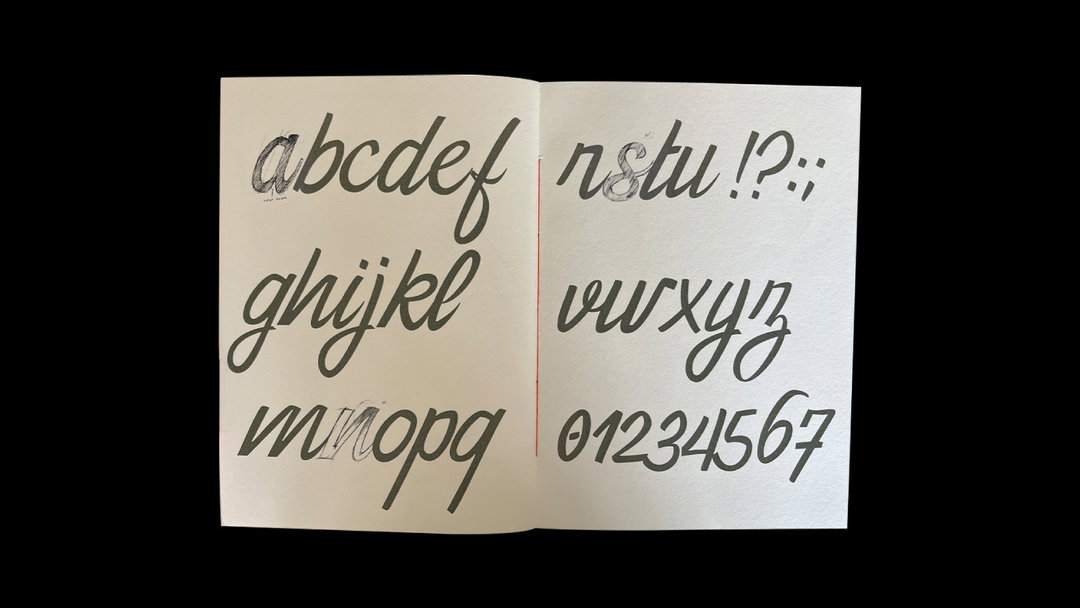 abcdef
ghijkl
mnopq
rstu!?:;
vwxyz
01234567